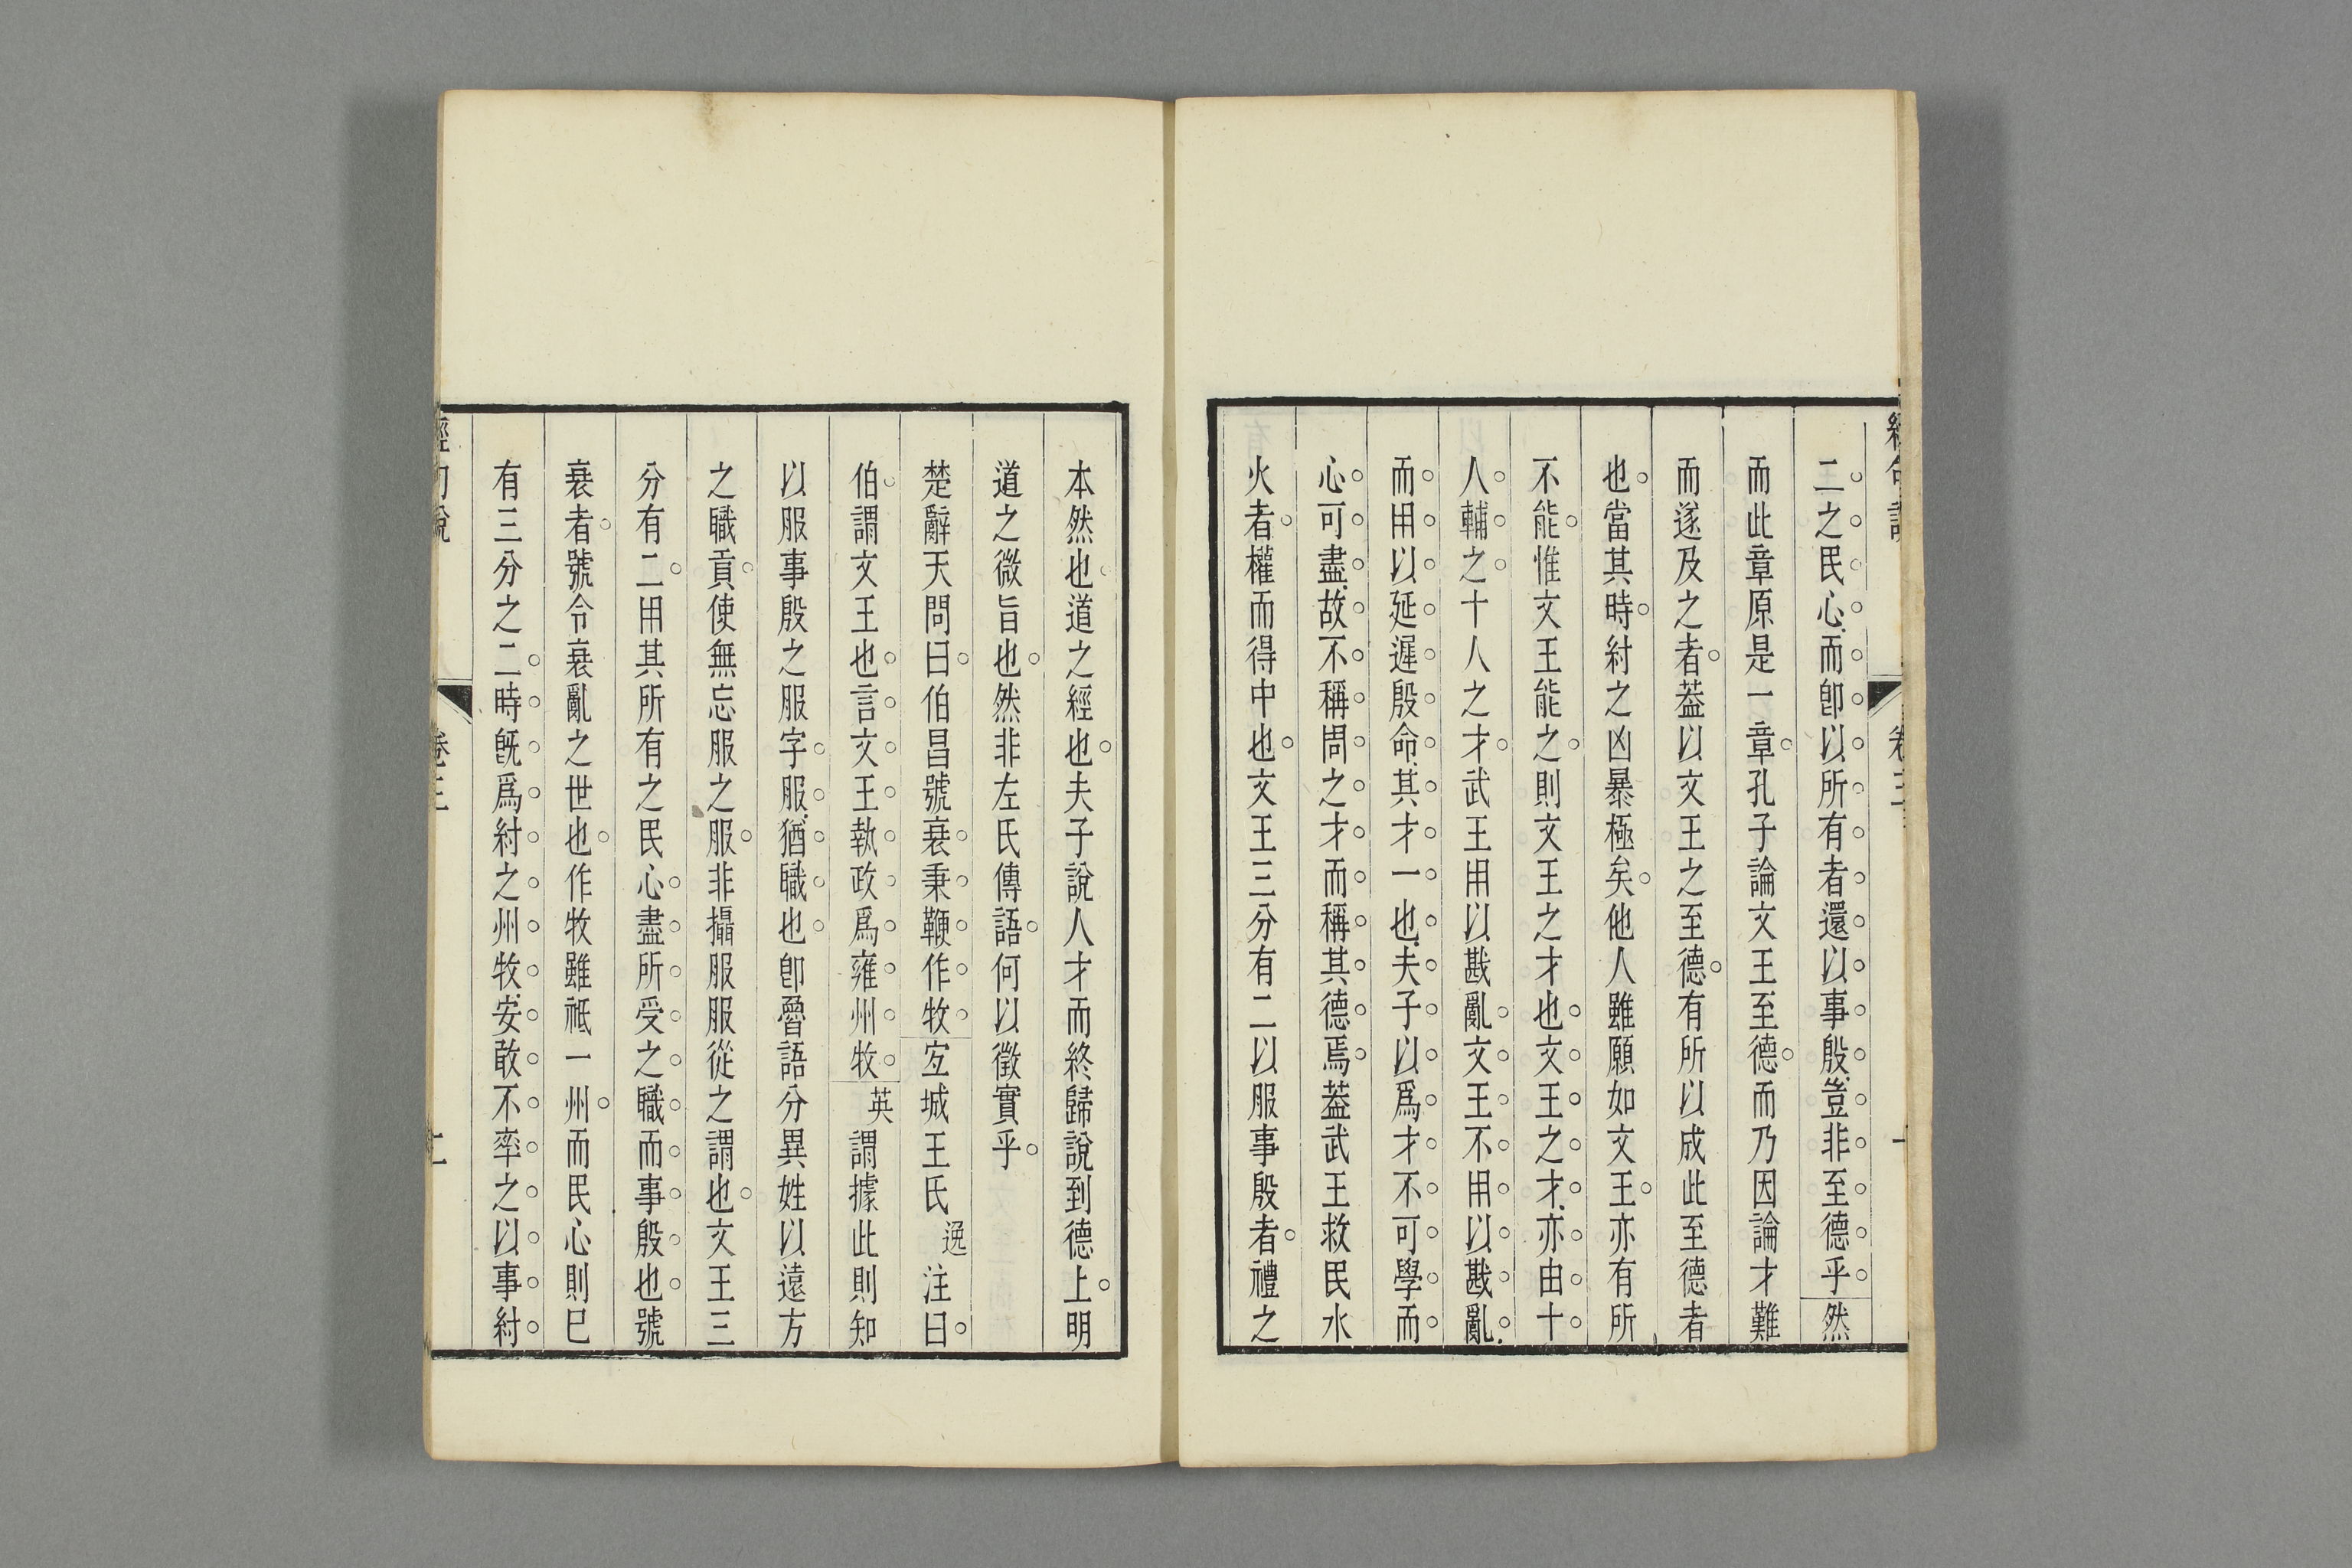 二之民心而卽以所有者還以事殷豈非至德乎然
而此章原是一章孔子論文王至德而乃因論才難
而遂及之者葢以文王之至德有所以成此至德者
也當其時紂之凶暴極矣他人雖願如文王亦有所
不能惟文王能之則文王之才也文王之才亦由十
人輔之十人之才武王用以戡亂文王不用以戡亂
而用以延遲殷命其才一也夫子以爲才不可學而
心可盡故不稱周之才而稱其德焉葢武王救民水
火者權而得中也文王三分有二以服事殷者禮之
本然也道之經也夫子說人才而終歸說到德上明
道之微旨也然非左氏傳語何以徵實乎
楚辭天問曰伯昌號衰秉鞭作牧宐城王氏逸注曰
伯謂文王也言文王執政爲雍州牧英謂據此則知
以服事殷之服字服猶職也卽魯語分異姓以遠方
之職貢使無忘服之服非攝服服從之謂也文王三
分有二用其所有之民心盡所受之職而事殷也號
衰者號令衰亂之世也作牧雖祗一州而民心則巳
有三分之二時旣爲紂之州牧安敢不率之以事紂
經句說
卷三